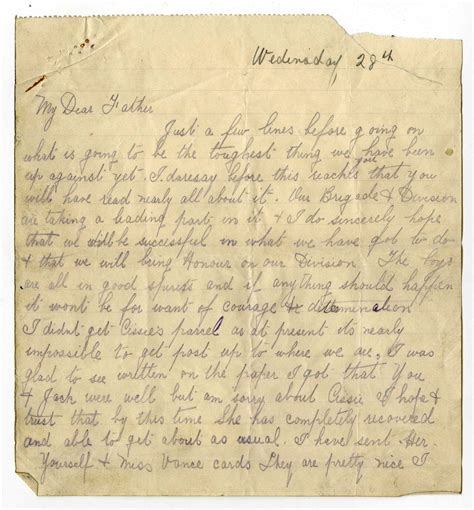 Wedensday 28th
My Dear Father
Just a few lines before going on
what is going to be the toughest thing we have been
up against yet. I daresay before this reaches you that you
will have read nearly all about it. Our Brigade & Division
are taking a leading part in it & I do sincerely hope
that we will be successful in what we have got to do
& that we will bring Honour on our Division The boys
are all in good spirits and if anything should happen
it wont be for want of courage & determination
I didnt get Cissie's parcel as at present its nearly
impossible to get post up to where we are, I was
glad to see written on the paper I got that You
& Jack were well but am sorry about Cissie I hope &
trust that by this time She has completely recovered
and able to get about as usual. I have sent Her.
Yourself & Miss Vance cards They are pretty nice I